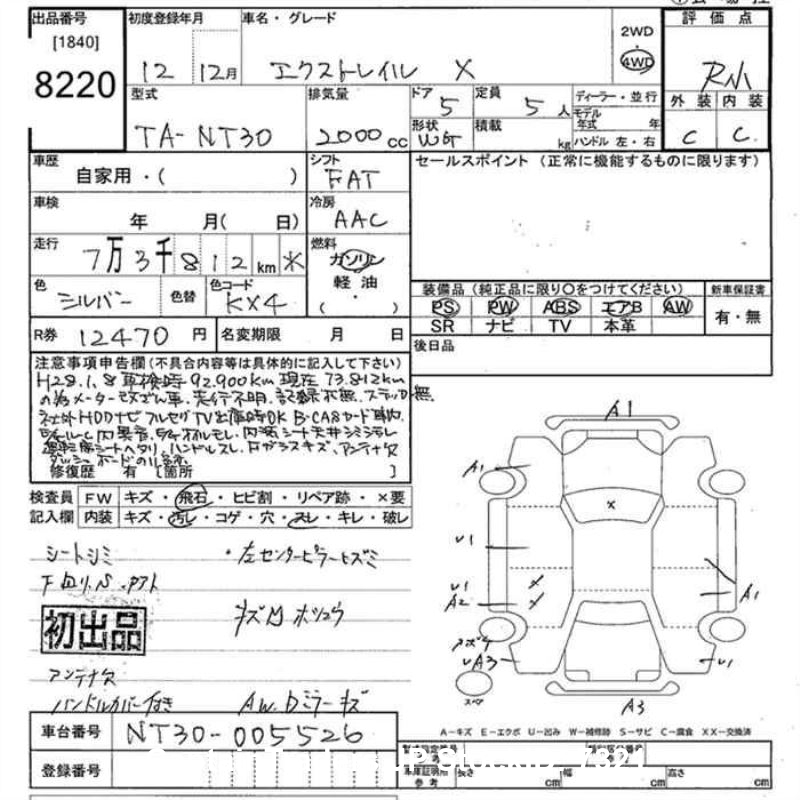 出品番号 初度登録年月 車名・グレード 評価点
[1840] 2WD
8220 12 12月 エクストレイル X 4WD R小
型式 排気量 ドア 5 定員 5人 ディーラー・並行 外装 内装
モデル年式 年
TA-NT30 2000cc 形状 WG 積載 kg ハンドル 左・右 C C
車歴 シフト セールスポイント(正常に機能するものに限ります)
自家用・( ) FAT
車検 冷房
年 月( 日) AAC
走行 燃料
7万3千812km ※ ガソリン
軽油
色 シルバー 色替 色コード KX4 ( ・ )
装備品(純正品に限り○をつけてください) 新車保証書
PS PW ABS エアB AW 有・無
SR ナビ TV 本革
R券 12470円 名変期限 月 日 後日品
注意事項申告欄(不具合内容等は具体的に記入して下さい)
H28.1.8車検時92,900km 現在73,812km
の為メーター改ざん車.走行不明.記録不無.ステッカー無.
社外HDDナビ フルセグTV出庫時OK B-CASカード
内異音. オイルモレ.内装シート天井シミ
運転席シートヘタリ ハンドルスレ.Fガラスキズ.アンテナ欠
ダッシュボードのり
修復歴 有 [箇所 ]
検査員 FW キズ・飛石・ヒビ割・リペア跡・×要
記入欄 内装 キズ・汚レ・コゲ・穴・スレ・キレ・破レ
シートシミ ・左センターピラーヒズミ
下回り.S.アト
キズ凹ホシュウ
初出品
アンテナ欠
ハンドルカバー付き AW.Dミラーキズ
A1
A1
×
U1
U1
A2
A1
UA3
U1
スペア
A3
A-キズ E-エクボ U-凹み W-補修跡 S-サビ C-腐食 XX-交換済
車台番号 NT30-005526
登録番号
車庫証明用参考 長さ cm 幅 cm 高さ cm